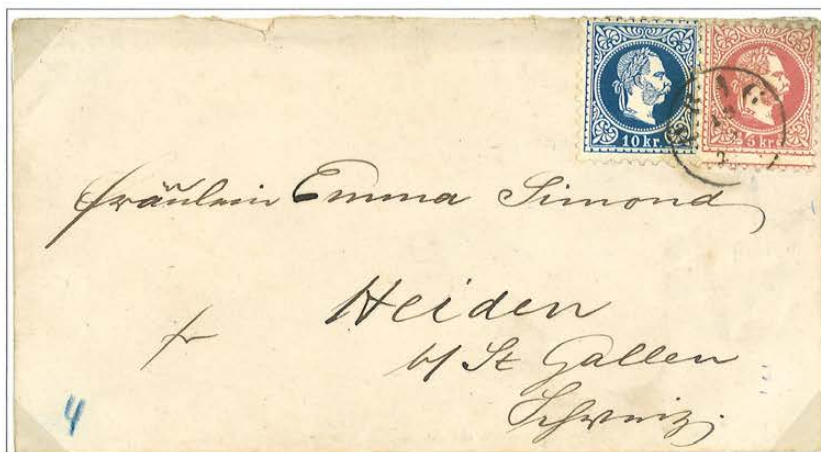 10 kr. 5 kr.
Fräulein Emma Simond
Heiden
fr
b/ St Gallen
Schweiz.
4